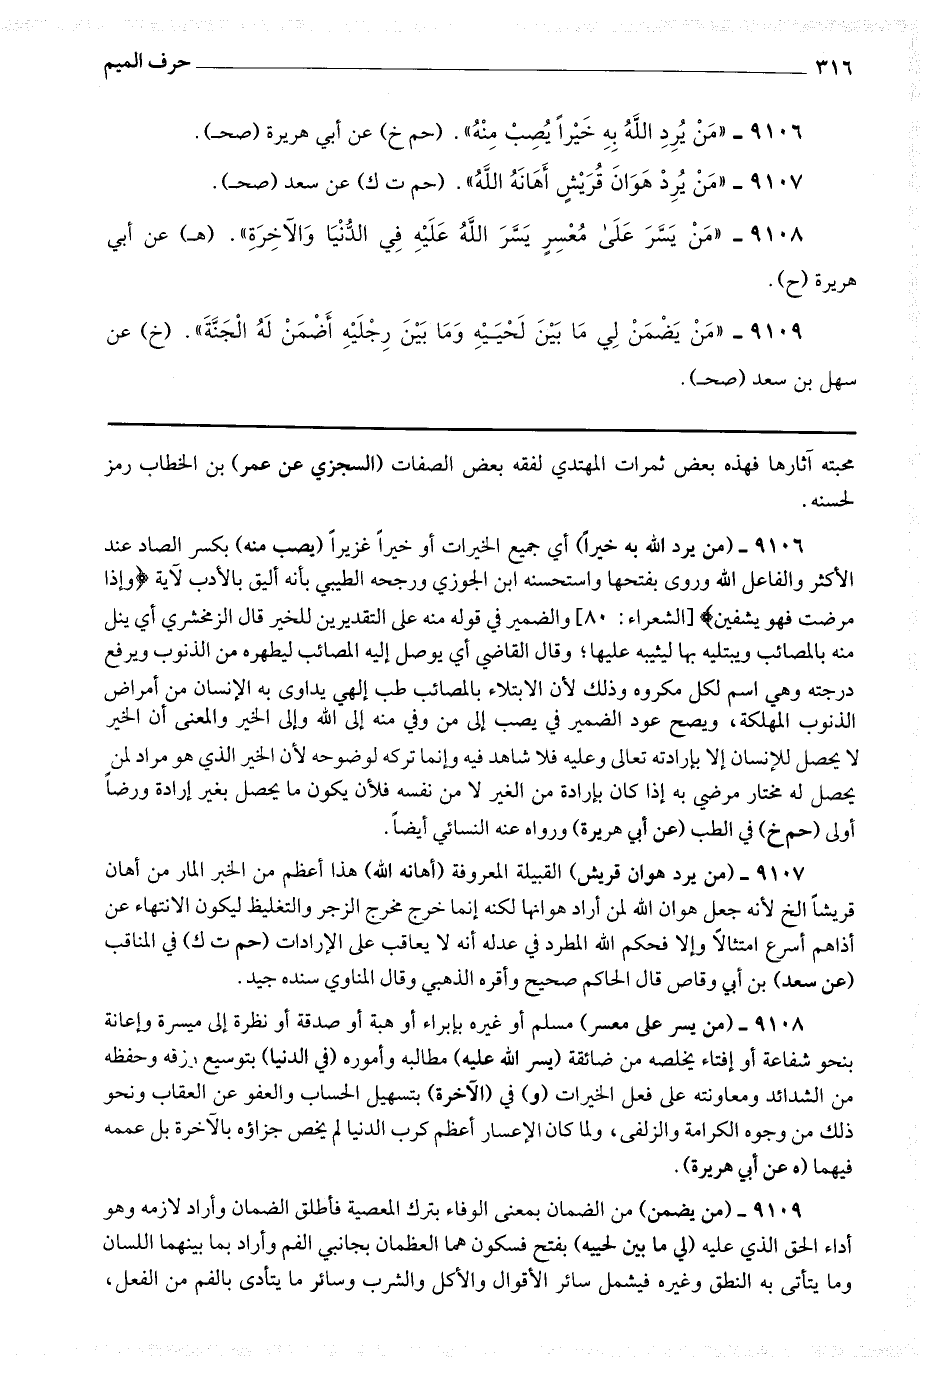 ٣١٦ حرف الميم
٩١٠٦ ـ «مَنْ يُرِدِ اللَّهُ بِهِ خَيْراً يُصِبْ مِنْهُ». (حم خ) عن أبي هريرة (صحـ).
٩١٠٧ ـ «مَنْ يُرِدْ هَوَانَ قُرَيْشٍ أَهَانَهُ اللَّهُ». (حم ت ك) عن سعد (صحـ).
٩١٠٨ ـ «مَنْ يَسَّرَ عَلَىٰ مُعْسِرٍ يَسَّرَ اللَّهُ عَلَيْهِ فِي الدُّنْيَا وَالْآخِرَةِ». (هـ) عن أبي
هريرة (ح).
٩١٠٩ ـ «مَنْ يَضْمَنْ لِي مَا بَيْنَ لَحْيَيْهِ وَمَا بَيْنَ رِجْلَيْهِ أَضْمَنْ لَهُ الْجَنَّةَ». (خ) عن
سهل بن سعد (صحـ).
محبته آثارها فهذه بعض ثمرات المهتدي لفقه بعض الصفات (السجزي عن عمر) بن الخطاب رمز
لحسنه.
٩١٠٦ ـ (من يرد الله به خيراً) أي جميع الخيرات أو خيراً غزيراً (يصب منه) بكسر الصاد عند
الأكثر والفاعل الله وروى بفتحها واستحسنه ابن الجوزي ورجحه الطيبي بأنه أليق بالأدب لآية ﴿وإذا
مرضت فهو يشفين﴾ [الشعراء: ٨٠] والضمير في قوله منه على التقديرين للخير قال الزمخشري أي ينل
منه بالمصائب ويبتليه بها ليثيبه عليها؛ وقال القاضي أي يوصل إليه المصائب ليطهره من الذنوب ويرفع
درجته وهي اسم لكل مكروه وذلك لأن الابتلاء بالمصائب طب إلهي يداوى به الإنسان من أمراض
الذنوب المهلكة، ويصح عود الضمير في يصب إلى من وفي منه إلى الله وإلى الخير والمعنى أن الخير
لا يحصل للإنسان إلا بإرادته تعالى وعليه فلا شاهد فيه وإنما تركه لوضوحه لأن الخير الذي هو مراد لمن
يحصل له مختار مرضي به إذا كان بإرادة من الغير لا من نفسه فلأن يكون ما يحصل بغير إرادة ورضاً
أولى (حم خ) في الطب (عن أبي هريرة) ورواه عنه النسائي أيضاً.
٩١٠٧ ـ (من يرد هوان قريش) القبيلة المعروفة (أهانه الله) هذا أعظم من الخبر المار من أهان
قريشاً الخ لأنه جعل هوان الله لمن أراد هوانها لكنه إنما خرج مخرج الزجر والتغليظ ليكون الانتهاء عن
أذاهم أسرع امتثالاً وإلا فحكم الله المطرد في عدله أنه لا يعاقب على الإرادات (حم ت ك) في المناقب
(عن سعد) بن أبي وقاص قال الحاكم صحيح وأقره الذهبي وقال المناوي سنده جيد.
٩١٠٨ ـ (من يسر على معسر) مسلم أو غيره بإبراء أو هبة أو صدقة أو نظرة إلى ميسرة وإعانة
بنحو شفاعة أو إفتاء يخلصه من ضائقة (يسر الله عليه) مطالبه وأموره (في الدنيا) بتوسيع رزقه وحفظه
من الشدائد ومعاونته على فعل الخيرات (و) في (الآخرة) بتسهيل الحساب والعفو عن العقاب ونحو
ذلك من وجوه الكرامة والزلفى، ولما كان الإعسار أعظم كرب الدنيا لم يخص جزاؤه بالآخرة بل عممه
فيهما (ه عن أبي هريرة).
٩١٠٩ ـ (من يضمن) من الضمان بمعنى الوفاء بترك المعصية فأطلق الضمان وأراد لازمه وهو
أداء الحق الذي عليه (لي ما بين لحييه) بفتح فسكون هما العظمان بجانبي الفم وأراد بما بينهما اللسان
وما يتأتى به النطق وغيره فيشمل سائر الأقوال والأكل والشرب وسائر ما يتأدى بالفم من الفعل،